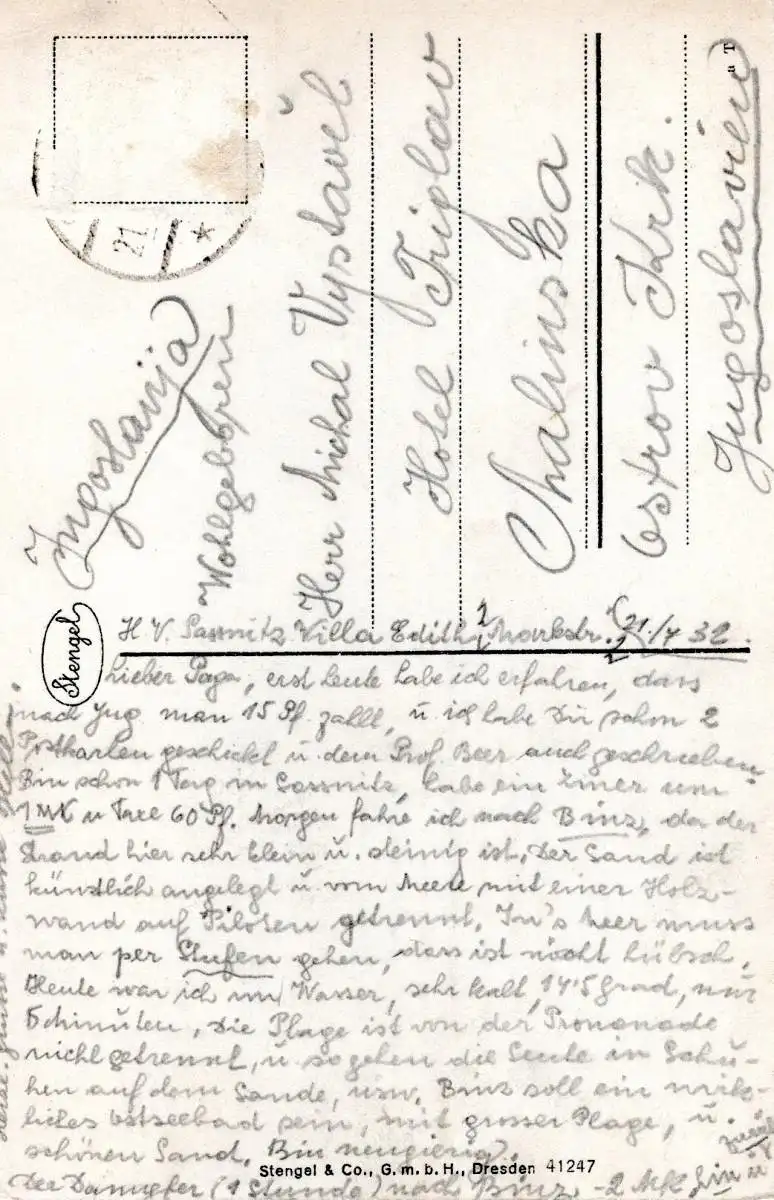 21
*
Jugoslavija
Wohlgeboren
Herr Michal Vystavěl
Hotel Triglav
Malinska
Ostrov Krk.
Jugoslavien
Stengel
H. V. Sassnitz Villa Edith, Markstr. 21./7 32.
Lieber Papa, erst heute habe ich erfahren, dass
nach Jug man 15 Pf. zahlt, u. ich habe Dir schon 2
Postkarten geschickt u. dem Prof. Beer auch geschrieben.
Bin schon 1 Tag in Sassnitz, habe ein Zimer um
1 MK u Taxe 60 Pf. Morgen fahre ich nach Binz, da der
Strand hier sehr klein u. steinig ist. Der Sand ist
künstlich angelegt u. vom Meere mit einer Holz-
wand auf Piloten getrennt. In's Meer muss
man per Stufen gehen, dass ist nicht hübsch.
Heute war ich im Wasser, sehr kalt, 14·5 Grad, nur
5 Minuten. Die Plage ist von der Promenade
nicht getrennt, u. so gehen die Leute in Schu-
hen auf dem Sande, usw. Binz soll ein wirk-
liches Ostseebad sein, mit grosser Plage, u.
schönen Sand. Bin neugierig.
Der Dampfer (1 Stunde) nach Binz - 2 MK hin u
zurück
Stengel & Co., G. m. b. H., Dresden 41247